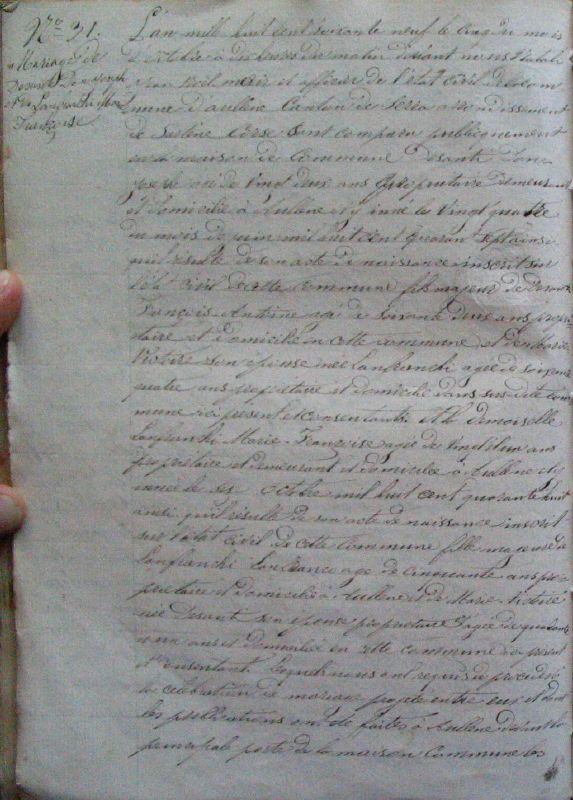 N.ro 31.
Mariage de
Desanti Don Joseph
et Lanfranchi Marie
Françoise
L'an mille huit cent soixante neuf le cinq du mois
d'octobre à dix heures du matin devant nous
maire et officier de l'état civil de la com
mune d'Aullene Canton de Serra arrondissement
de Sartene Corse sont comparu publiquement
en la maison de Commune Desanti Don
Joseph agé de vingt deux ans propriétaire demeurant
et domicilié à Aullene et y inné les vingt quatre
du mois de juin mil huit cent quarante sept ainsi
qu'il résulte de son acte de naissance inscrit sur
l'état civil de cette Commune fils majeur de Desanti
François Antoine agé de soixante deux ans proprié
taire et domicilié en cette commune et de Marie
Victoire son épouse née Lanfranchi agée de soixante
quatre ans propriétaire et domicilié dans susdite com
mune ici présent et consentants. Et la Demoiselle
Lanfranchi Marie-Françoise agée de vingt un ans
propriétaire et demeurant et domiciliée à Aullene et y
innée le six octobre mil huit cent quarante huit
ainsi qu'il résulte de son acte de naissance inscrit
sur l'état civil de cette Commune fille majeure de
Lanfranchi Lanfranco agé de cinquante ans pro
priétaire et domicilié à Aullene et de Marie-Victoire
née Desanti son épouse propriétaire agée de quarante
un ans et domiciliée en cette commune ici présent
et consentant. Lesquels nous ont requis de procéder à
la célébration de mariage projeté entre eux et dont
les publications ont été faites à Aullene devant la
principale porte de la maison commune les